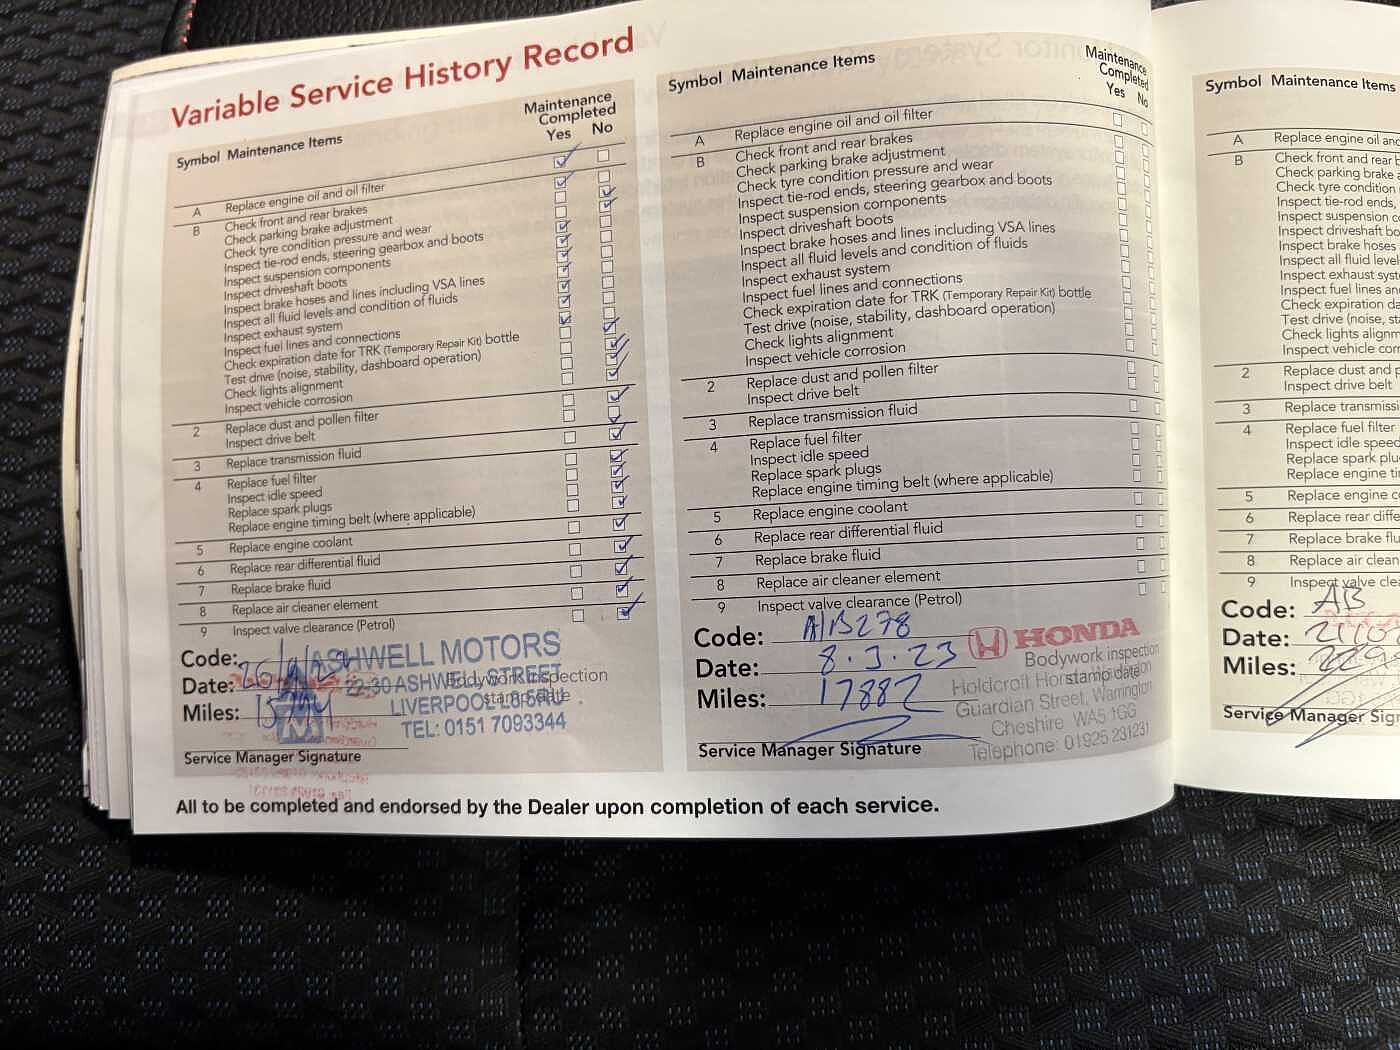 Variable Service History Record
Maintenance
Completed
Symbol Maintenance Items Yes No
A Replace engine oil and oil filter
B Check front and rear brakes
Check parking brake adjustment
Check tyre condition pressure and wear
Inspect tie-rod ends, steering gearbox and boots
Inspect suspension components
Inspect driveshaft boots
Inspect brake hoses and lines including VSA lines
Inspect all fluid levels and condition of fluids
Inspect exhaust system
Inspect fuel lines and connections
Check expiration date for TRK (Temporary Repair Kit) bottle
Test drive (noise, stability, dashboard operation)
Check lights alignment
Inspect vehicle corrosion
2 Replace dust and pollen filter
Inspect drive belt
3 Replace transmission fluid
4 Replace fuel filter
Inspect idle speed
Replace spark plugs
Replace engine timing belt (where applicable)
5 Replace engine coolant
6 Replace rear differential fluid
7 Replace brake fluid
8 Replace air cleaner element
9 Inspect valve clearance (Petrol)
Code:
Date:
Miles:
ASHWELL MOTORS
22-30 ASHWELL STREET
LIVERPOOL L8 5RU
TEL: 0151 7093344
Bodywork inspection
stamp date
Service Manager Signature
Maintenance
Completed
Symbol Maintenance Items Yes No
A Replace engine oil and oil filter
B Check front and rear brakes
Check parking brake adjustment
Check tyre condition pressure and wear
Inspect tie-rod ends, steering gearbox and boots
Inspect suspension components
Inspect driveshaft boots
Inspect brake hoses and lines including VSA lines
Inspect all fluid levels and condition of fluids
Inspect exhaust system
Inspect fuel lines and connections
Check expiration date for TRK (Temporary Repair Kit) bottle
Test drive (noise, stability, dashboard operation)
Check lights alignment
Inspect vehicle corrosion
2 Replace dust and pollen filter
Inspect drive belt
3 Replace transmission fluid
4 Replace fuel filter
Inspect idle speed
Replace spark plugs
Replace engine timing belt (where applicable)
5 Replace engine coolant
6 Replace rear differential fluid
7 Replace brake fluid
8 Replace air cleaner element
9 Inspect valve clearance (Petrol)
Code: A/B278
Date: 8.3.23
Miles: 17882
HONDA
Bodywork inspection
stamp date
Holdcroft Honda Warrington
Guardian Street, Warrington
Cheshire WA5 1GG
Telephone: 01925 231231
Service Manager Signature
All to be completed and endorsed by the Dealer upon completion of each service.
Symbol Maintenance Items
A Replace engine oil and
B Check front and rear b
Check parking brake a
Check tyre condition
Inspect tie-rod ends,
Inspect suspension c
Inspect driveshaft bo
Inspect brake hoses
Inspect all fluid level
Inspect exhaust syst
Inspect fuel lines an
Check expiration da
Test drive (noise, st
Check lights alignm
Inspect vehicle corr
2 Replace dust and p
Inspect drive belt
3 Replace transmissi
4 Replace fuel filter
Inspect idle speed
Replace spark plu
Replace engine ti
5 Replace engine c
6 Replace rear diffe
7 Replace brake flu
8 Replace air clean
9 Inspect valve clea
Code: AB
Date:
Miles:
Service Manager Sig